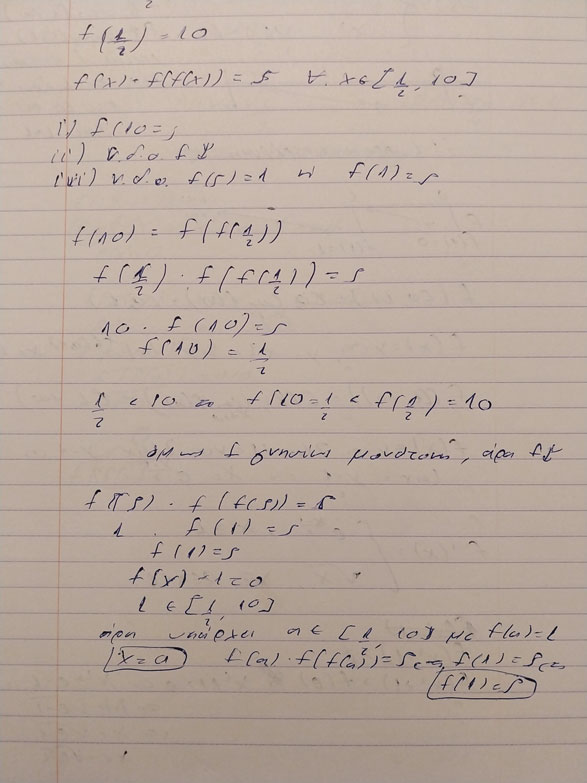 2
f(1/2) = 10
f(x) · f(f(x)) = 5 ∀ x ∈ [1/2, 10]
i) f(10 = ;
ii) ν.δ.ο. f ↓
iii) ν.δ.ο. f(5) = 1 f(1) = 5
f(10) = f(f(1/2))
f(1/2) · f(f(1/2)) = 5
10 · f(10) = 5
f(10) = 1/2
1/2 < 10 f(10 = 1/2 < f(1/2) = 10
όμως f γνησίως μονότονη, άρα f↓
f(5) · f(f(5)) = 5
1 · f(1) = 5
f(1) = 5
f(x) - 1 = 0
1 ∈ [1/2, 10]
άρα υπάρχει a ∈ [1/2, 10] με f(a) = 1
x = a f(a) · f(f(a)) = 5 ⇔ f(1) = 5 ⇔
f(1) = 5